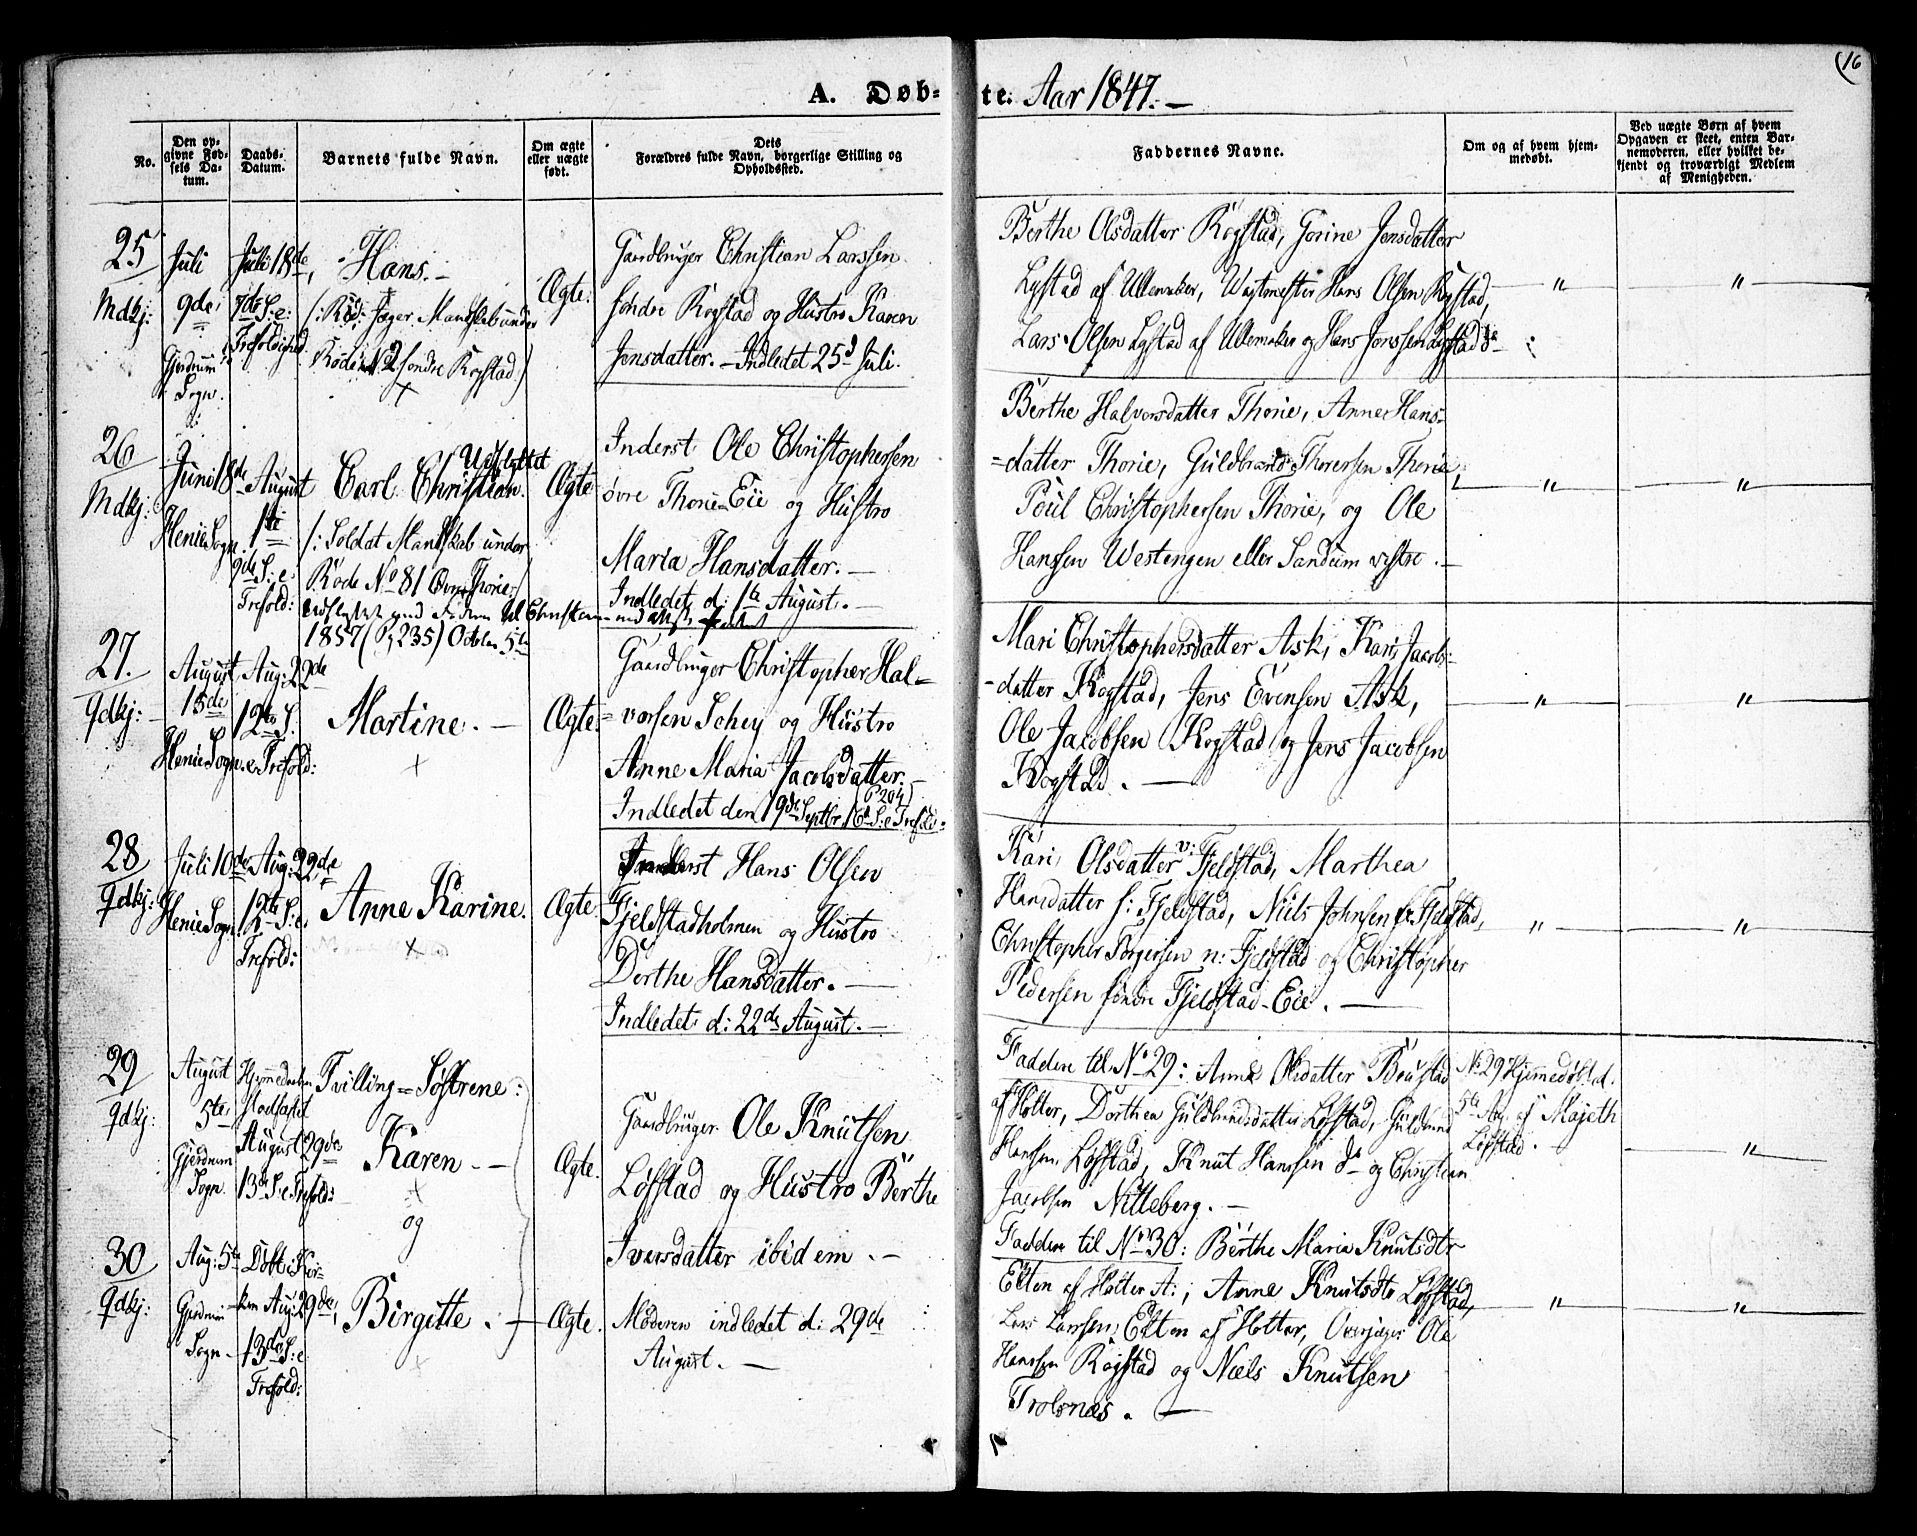 16
A. Døbte. Aar 1847.
No.
Den opgivne Fødsels Datum.
Daabs-Datum.
Barnets fulde Navn.
Om ægte eller uægte født.
Dets Forældres fulde Navn, borgerlige Stilling og Opholdssted.
Faddernes Navne.
Om og af hvem hjemmedøbt.
Ved uægte Børn af hvem Opgaven er skeet, enten Barnemoderen, eller hvilket bekjendt og troværdigt Medlem af Menigheden.
25
Mdkj:
Juli
9de
Gjerdrum
Sogn.
Juli 18de,
7de S: e:
Trefoldighed.
Hans. -
/: Rød: Jæger Mandskab under
Rode No 2 søndre Kogstad.)
Ægte:
Gaardbruger Christian Larssen
søndre Kogstad og Hustro Karen
Jensdatter. - Indledet 25d Juli.
Berthe Olsdatter Kogstad, Gorine Jensdatter
Lystad af Ullensaker, Vagtmester Hans Olsen Kogstad,
Lars Olsen Lystad af Ullensaker og Hans Jonssen Lystad
"
"
26
Mdkj:
Juni 18de
Henie Sogn.
August
1ste
9de S: e:
Trefold:
Udflyttet
Carl Christian.
/: Soldat Mandskab under
Rode No 81 Øvre Thorie:/
1857 (P, 235) October 5te
Ægte
Inderst Ole Christophersen
øvre Thorie-Eie og Hustro
Maria Hansdatter. -
Indledet d: 1ste August. -
Berthe Halvorsdatter Thorie, Anne Hans-
=datter Thorie, Guldbrand Thoresen Thorie,
Poul Christophersen Thorie, og Ole
Hanssen Westengen eller Sandum vestre. -
"
"
27.
Qdkj:
August
15de
Henie Sogn.
Aug: 22de
12te S.
e. Trefold:
Martine. -
Ægte:
Gaardbruger Christopher Hal-
=vorsen Schey og Hustro
Anne Maria Jacobsdatter. -
(P 204)
Indledet den 19de Septbr. 16d S: e Trefold:
Mari Christophersdatter Ask, Kari Jacobs-
-datter Kogstad, Jens Evensen Ask,
Ole Jacobsen Kogstad og Jens Jacobsen
Kogstad. -
"
"
28
Qdkj:
Juli 10de
Henie Sogn.
Aug: 22de
12te S: e:
Trefold:
Anne Karine.
Ægte.
Inderst Hans Olsen
Fjeldstadholmen og Hustro
Dorthe Hansdatter. -
Indledet d: 22de August. -
Kari Olsdatter v: Fjeldstad, Marthea
Hansdatter s: Fjeldstad, Niels Johnsen Fjeldstad,
Christopher Torgersen n: Fjeldstad og Christopher
Pedersen søndre Fjeldstad-Eie. -
"
"
29
Qdkj:
August
5te
Gjerdrum
Sogn.
Stadfæstet
August 29de
13de S: e Trefold:
Tvilling=Søstrene:
Karen -
og
Ægte.
Gaardbruger Ole Knutsen
Løfstad og Hustro Berthe
Iversdatter ibidem. -
Faddere til No 29: Anne Olsdatter
af Holter, Dorthea Guldbrandsdatter Løfstad, Guldbrand
Hanssen Løfstad, Knut Hanssen do og Christian
Jacobsen Nitteberg. -
No 29 Hjemmedøbt d.
5te Aug. af Majeth
Løfstad.
"
30
Qdkj:
Aug: 5te
Gjerdrum
Sogn.
Døbt i Kir-
ken Aug: 29de,
13de S: e
Trefold:
Birgitte. -
Ægte.
Moderen indledet d: 29de
August. -
Faddere til No 30: Berthe Maria Knutsdtr
Elton af Holter A:, Anne Knutsdtr Løfstad,
Lars Larssen Elton af Holter, Overjæger Ole
Hanssen Kogstad og Niels Knutsen
Trolsnæs. -
"
"